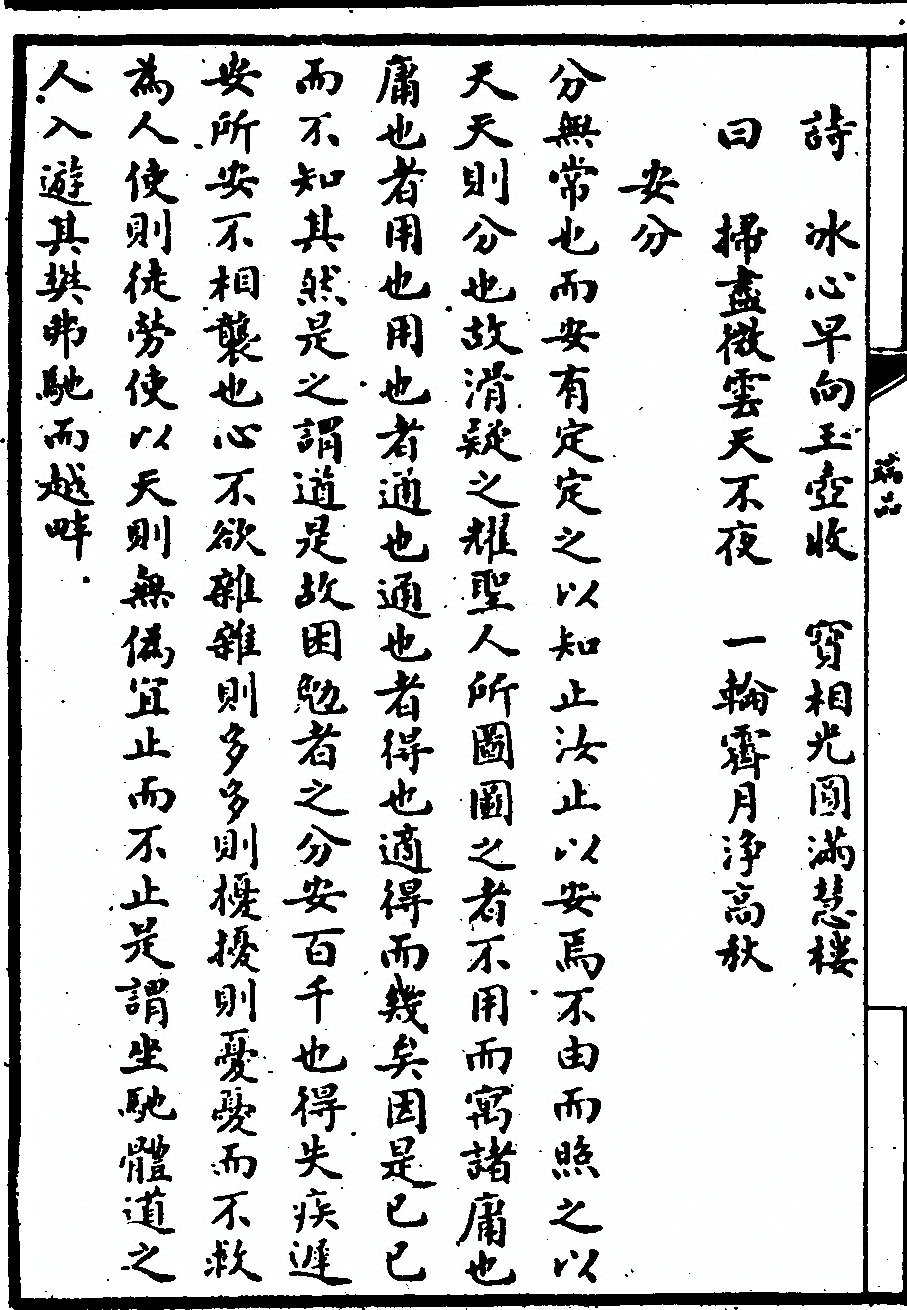 詩 冰心早向玉壺收 寶相光圓滿慧樓
曰 掃盡微雲天不夜 一輪霽月淨高秋
安分
分無常也而安有定定之以知止汝止以安焉不由而照之以
天天則分也故滑疑之耀聖人所圖圖之者不用而寓諸庸也
庸也者用也用也者通也通也者得也適得而幾矣因是已已
而不知其然是之謂道是故困勉者之分安百千也得失疾遲
安所安不相襲也心不欲雜雜則多多則擾擾則憂憂而不救
為人使則徒勞使以天則無偽宜止而不止是謂坐馳體道之
人入遊其樊弗馳而越畔